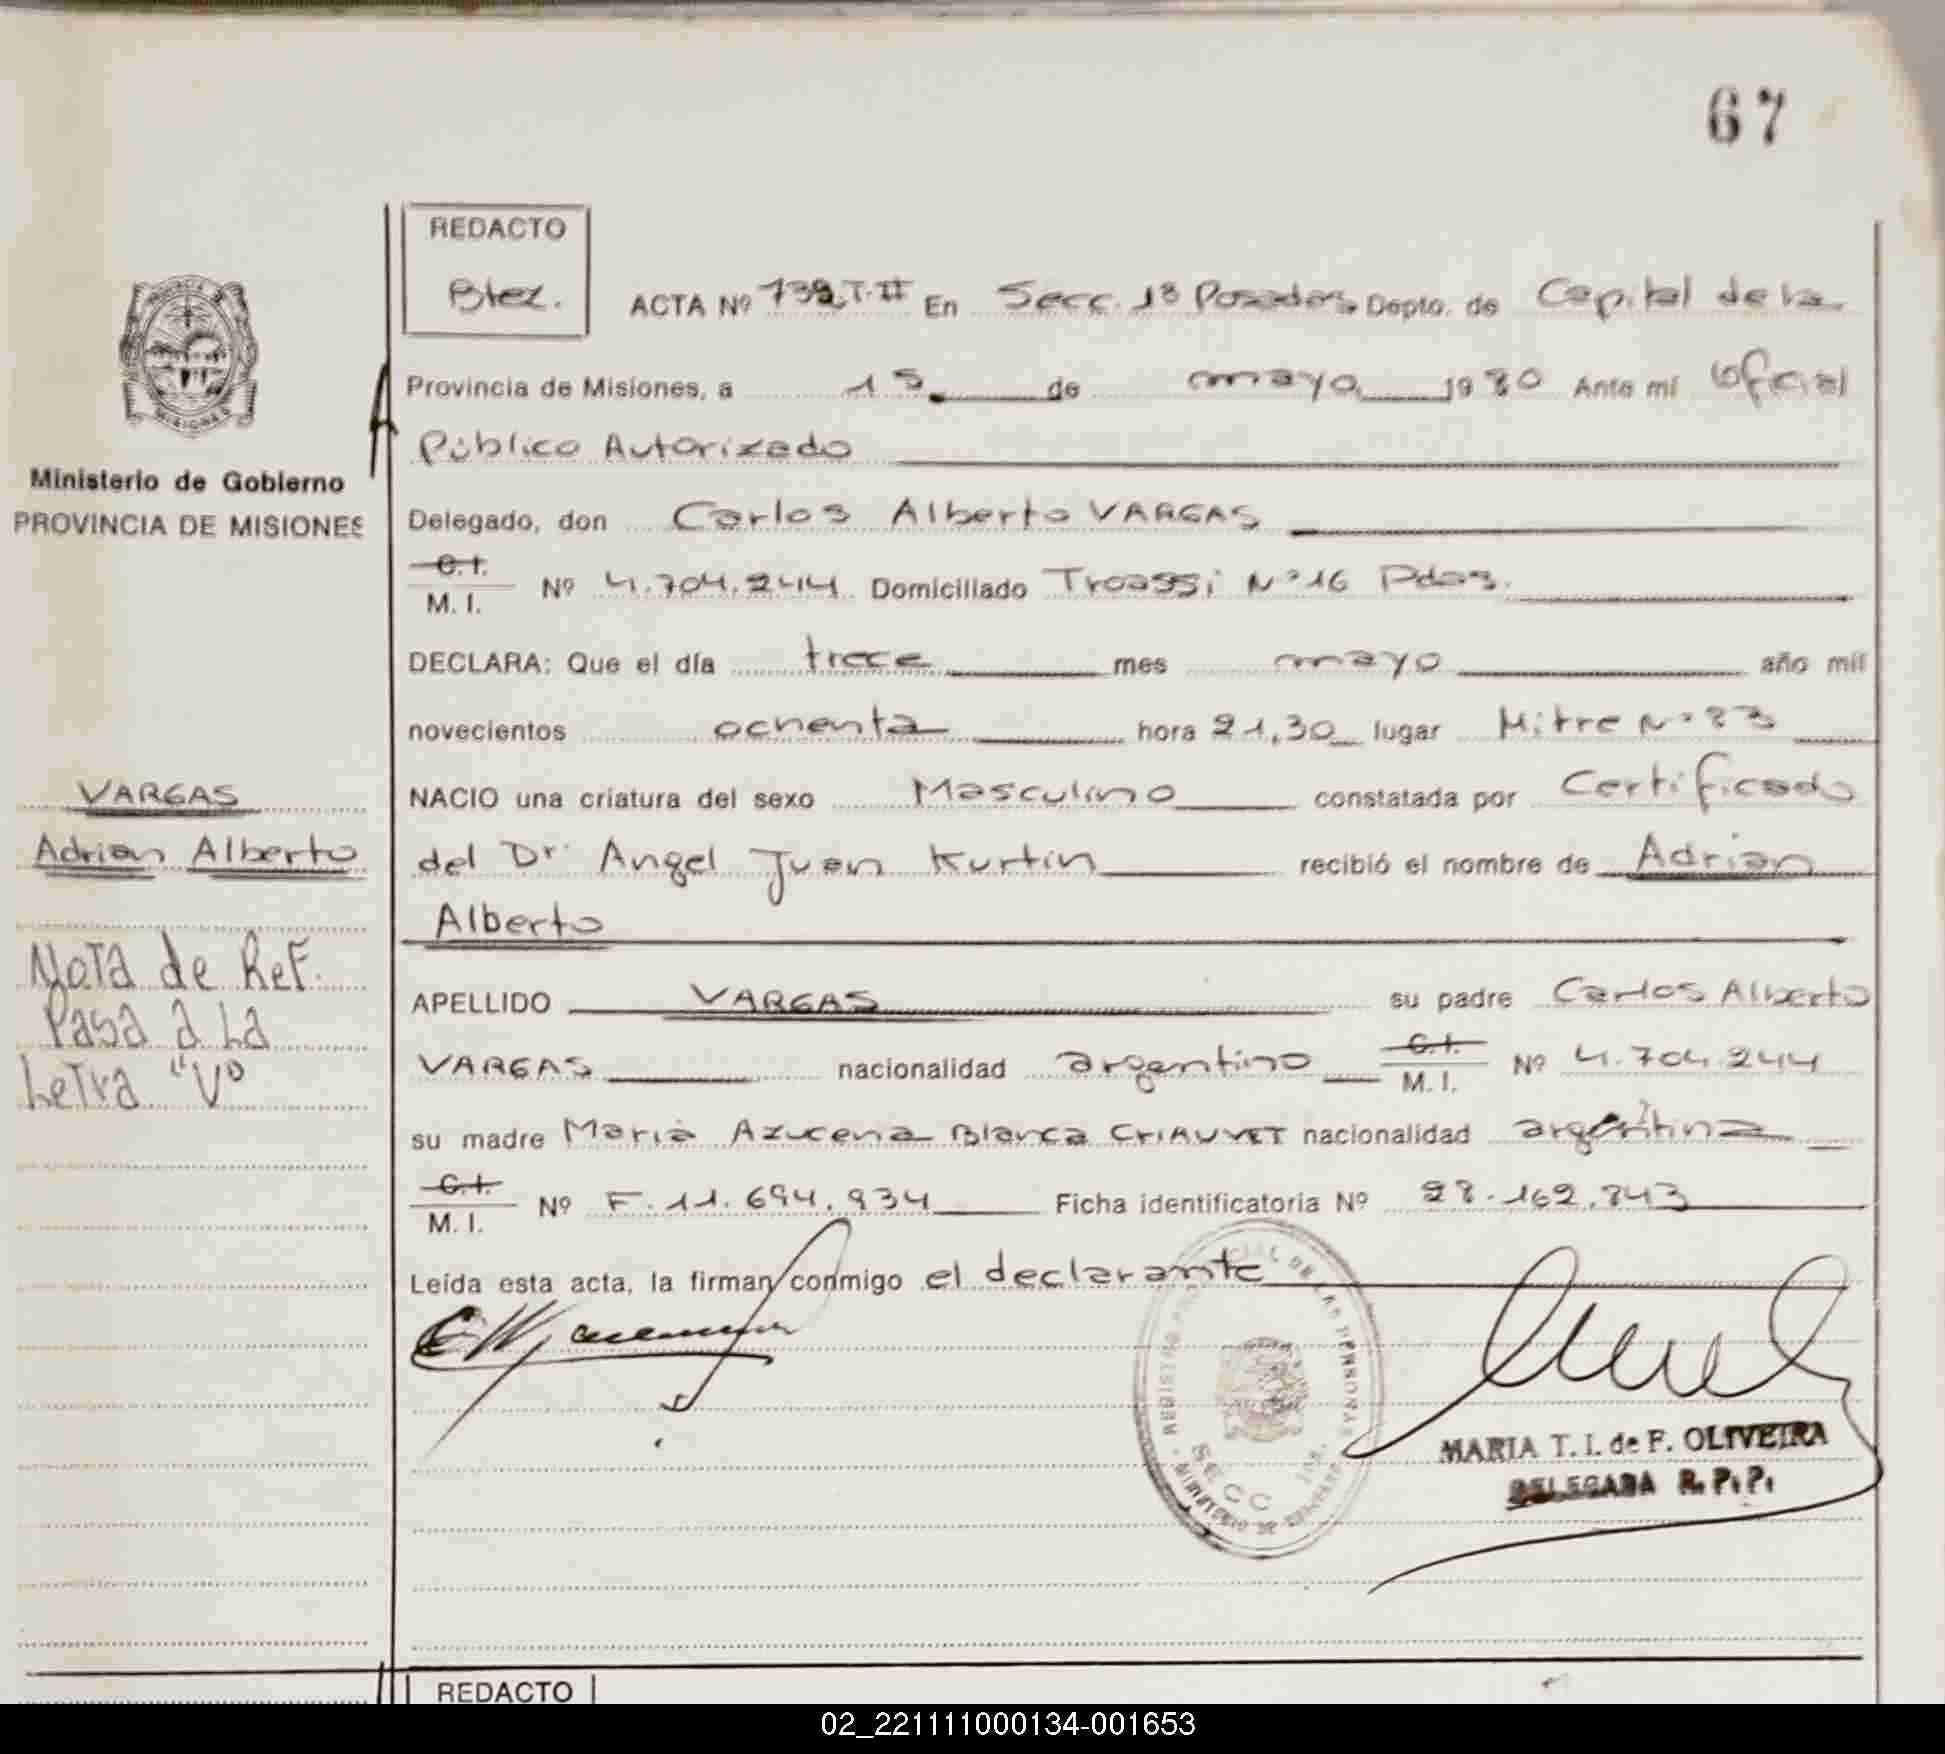 67
REDACTO
Btez.
ACTA Nº 739, T. II En Secc. 1ª Posadas, Depto. de Capital de la
Provincia de Misiones, a 15 de mayo 1980 Ante mí Oficial
Público Autorizado
Ministerio de Gobierno
PROVINCIA DE MISIONES
Delegado, don Carlos Alberto VARGAS
C.I.
M. I. Nº 4.704.244 Domiciliado Troassi Nº 16 Pdas.
DECLARA: Que el día trece mes mayo año mil
novecientos ochenta hora 21,30 lugar Mitre Nº 83
NACIO una criatura del sexo Masculino constatada por Certificado
del Dr. Angel Juan Kurtin recibió el nombre de Adrian
Alberto
VARGAS
Adrian Alberto
Nota de Ref.
Pasa a La
Letra "V"
APELLIDO VARGAS su padre Carlos Alberto
VARGAS nacionalidad argentino C.I. M. I. Nº 4.704.244
su madre Maria Azucena Blanca nacionalidad argentina
C.I.
M. I. Nº F. 11.694.934 Ficha identificatoria Nº 28.162.843
Leída esta acta, la firman conmigo el declarante
SECC
MARIA T. I. de F. OLIVEIRA
DELEGADA R. P. P.
REDACTO
02_221111000134-001653